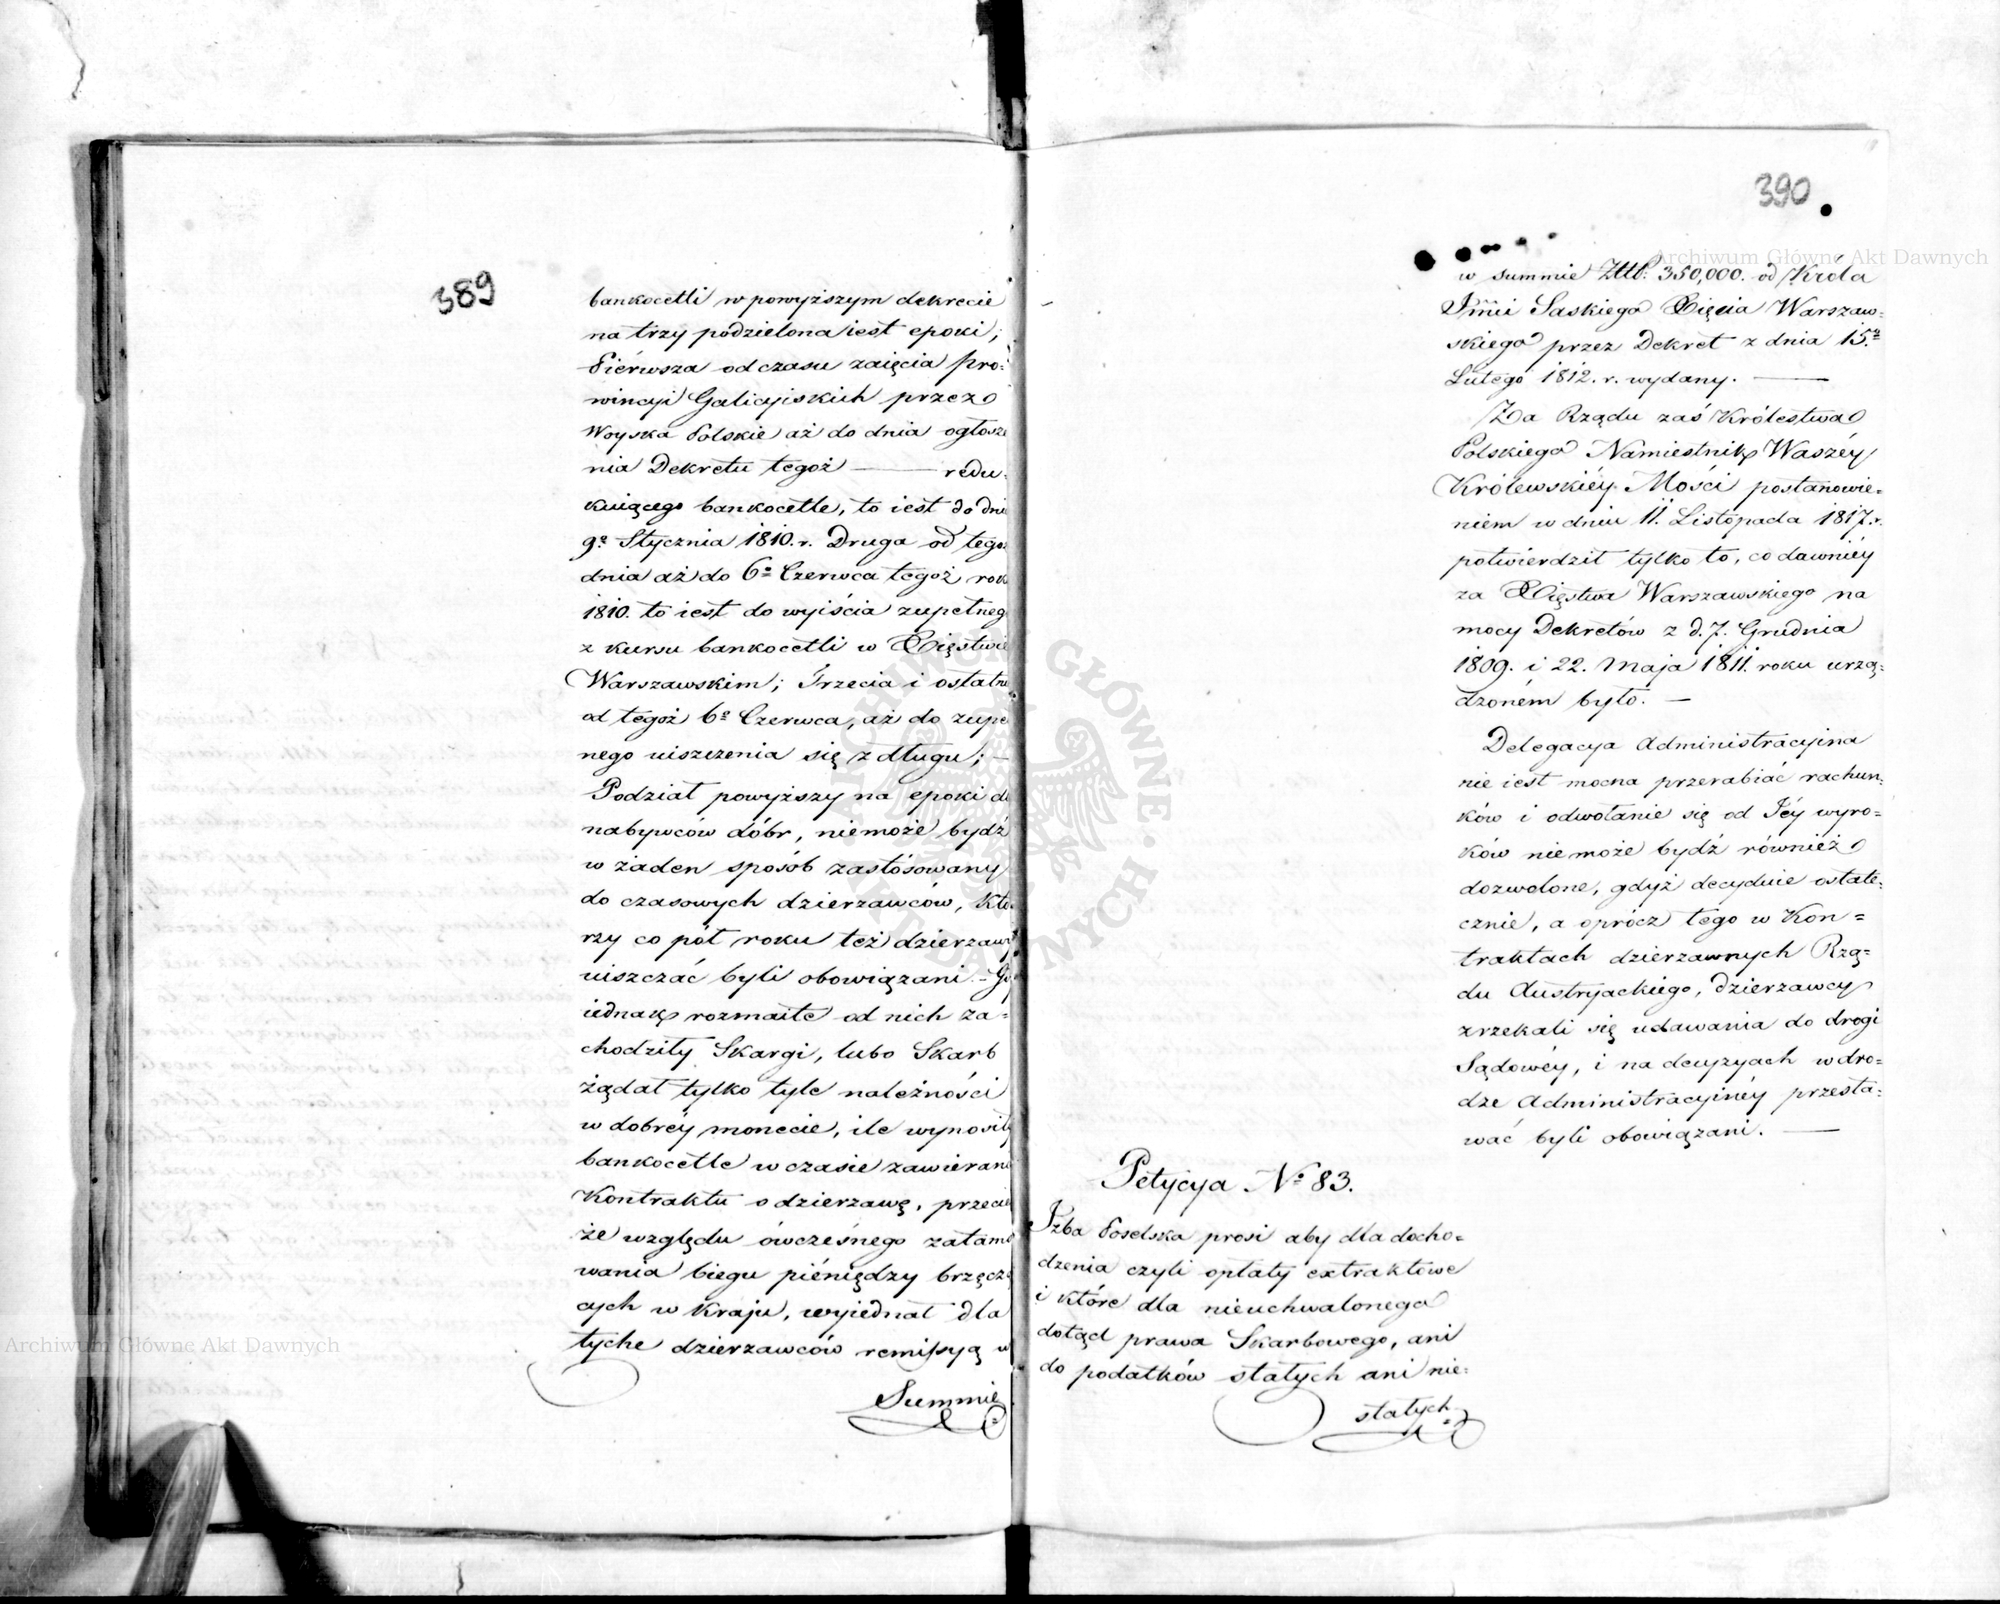 389
bankocetli w powyższym dekrecie
na trzy podzielona iest epoki;
Piérwsza od czasu zaięcia Pro=
wincyi Galicyjskich przez
Woyska Polskie aż do dnia ogłosze
nia Dekretu tegoż — redu=
kuiącego bankocetle, to iest do dni
9º Stycznia 1810. r. Druga od tego
dnia aż do 6º Czerwca tegoż rok
1810. to iest do wyiścia zupełneg
z kursu bankocetli w Xięstwie
Warszawskim; Trzecia i ostatni
od tegoż 6º Czerwca, aż do zupe
nego uiszczenia się z długu; —
Podział powyższy na epoki dl
nabywców dóbr, niemoże bydź
w żaden sposób zastósowany
do czasowych dzierzawców, któ
rzy co pół roku też dzierzawy
uiszczać byli obowiązani. – Gdy
iednak rozmaite od nich za=
chodziły Skargi, lubo Skarb
żądał tylko tyle należności
w dobréy monecie, ile wynosiły
bankocetle w czasie zawierani
Kontraktu o dzierzawę, przecie
że względu ówczesnego zatamo
wania biegu piéniędzy brzęczą
cych w Kraju, wyiednał dla
tychże dzierzawców remissyą w
Summie
390
w summie Złłp. 350,000. od Króla
Jmći Saskiego Xięcia Warszaw=
skiego przez Dekret z dnia 15.
Lutego 1812. r. wydany. —
Za Rządu zaś Królestwa
Polskiego Namiestnik Waszéy
Królewskiéy Mości postanowie=
niem w dniu 11. Listopada 1817. r.
potwierdził tylko to, co dawniéy
za Xięstwa Warszawskiego na
mocy Dekretów z d. 7. Grudnia
1809. i 22. Maja 1811. roku urzą=
dzoném było. —
Delegacya Administracyina
nie iest mocna przerabiać rachun=
ków i odwołanie się od Jéy wyro=
ków niemoże bydź również
dozwolone, gdyż decyduie ostate=
cznie, a oprócz tego w Kon=
traktach dzierzawnych Rzą=
du Austryackiego, dzierzawcy
zrzekali się udawania do drogi
Sądowéy, i na decyzyach w dro=
dze Administracyinéy przesta=
wać byli obowiązani. —
Petycya Nº 83.
Izba Poselska prosi aby dla docho=
dzenia czyli opłaty extraktowe
i które dla nieuchwalonego
dotąd prawa Skarbowego, ani
do podatków stałych ani nie=
stałych
Archiwum Główne Akt Dawnych
Archiwum Główne Akt Dawnych
ARCHIWUM GŁÓWNE AKT DAWNYCH